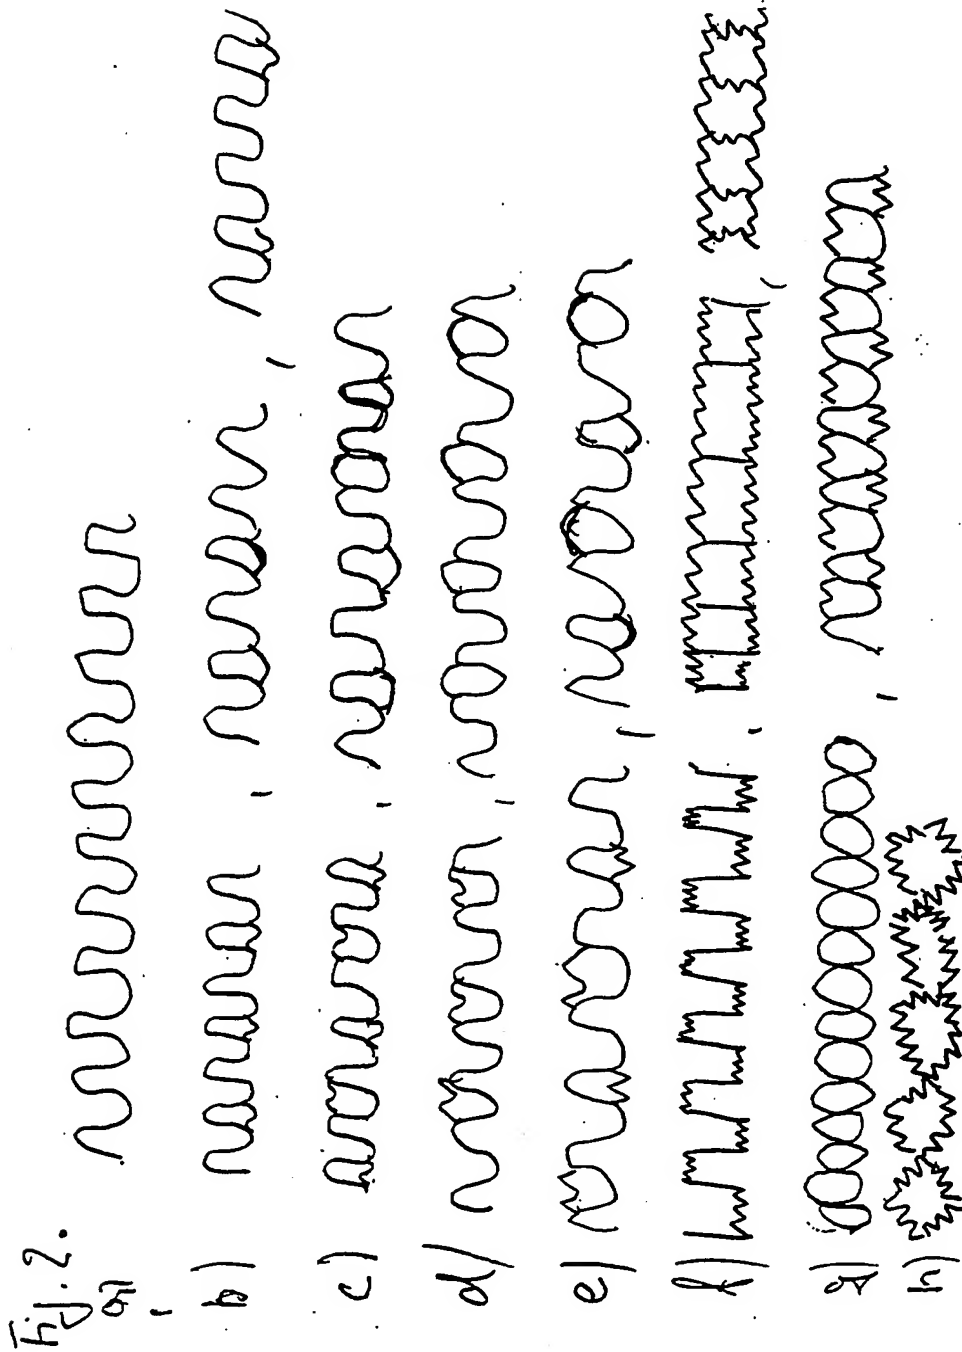 Fig. 2.
a)
b)
c)
d)
e)
f)
g)
h)